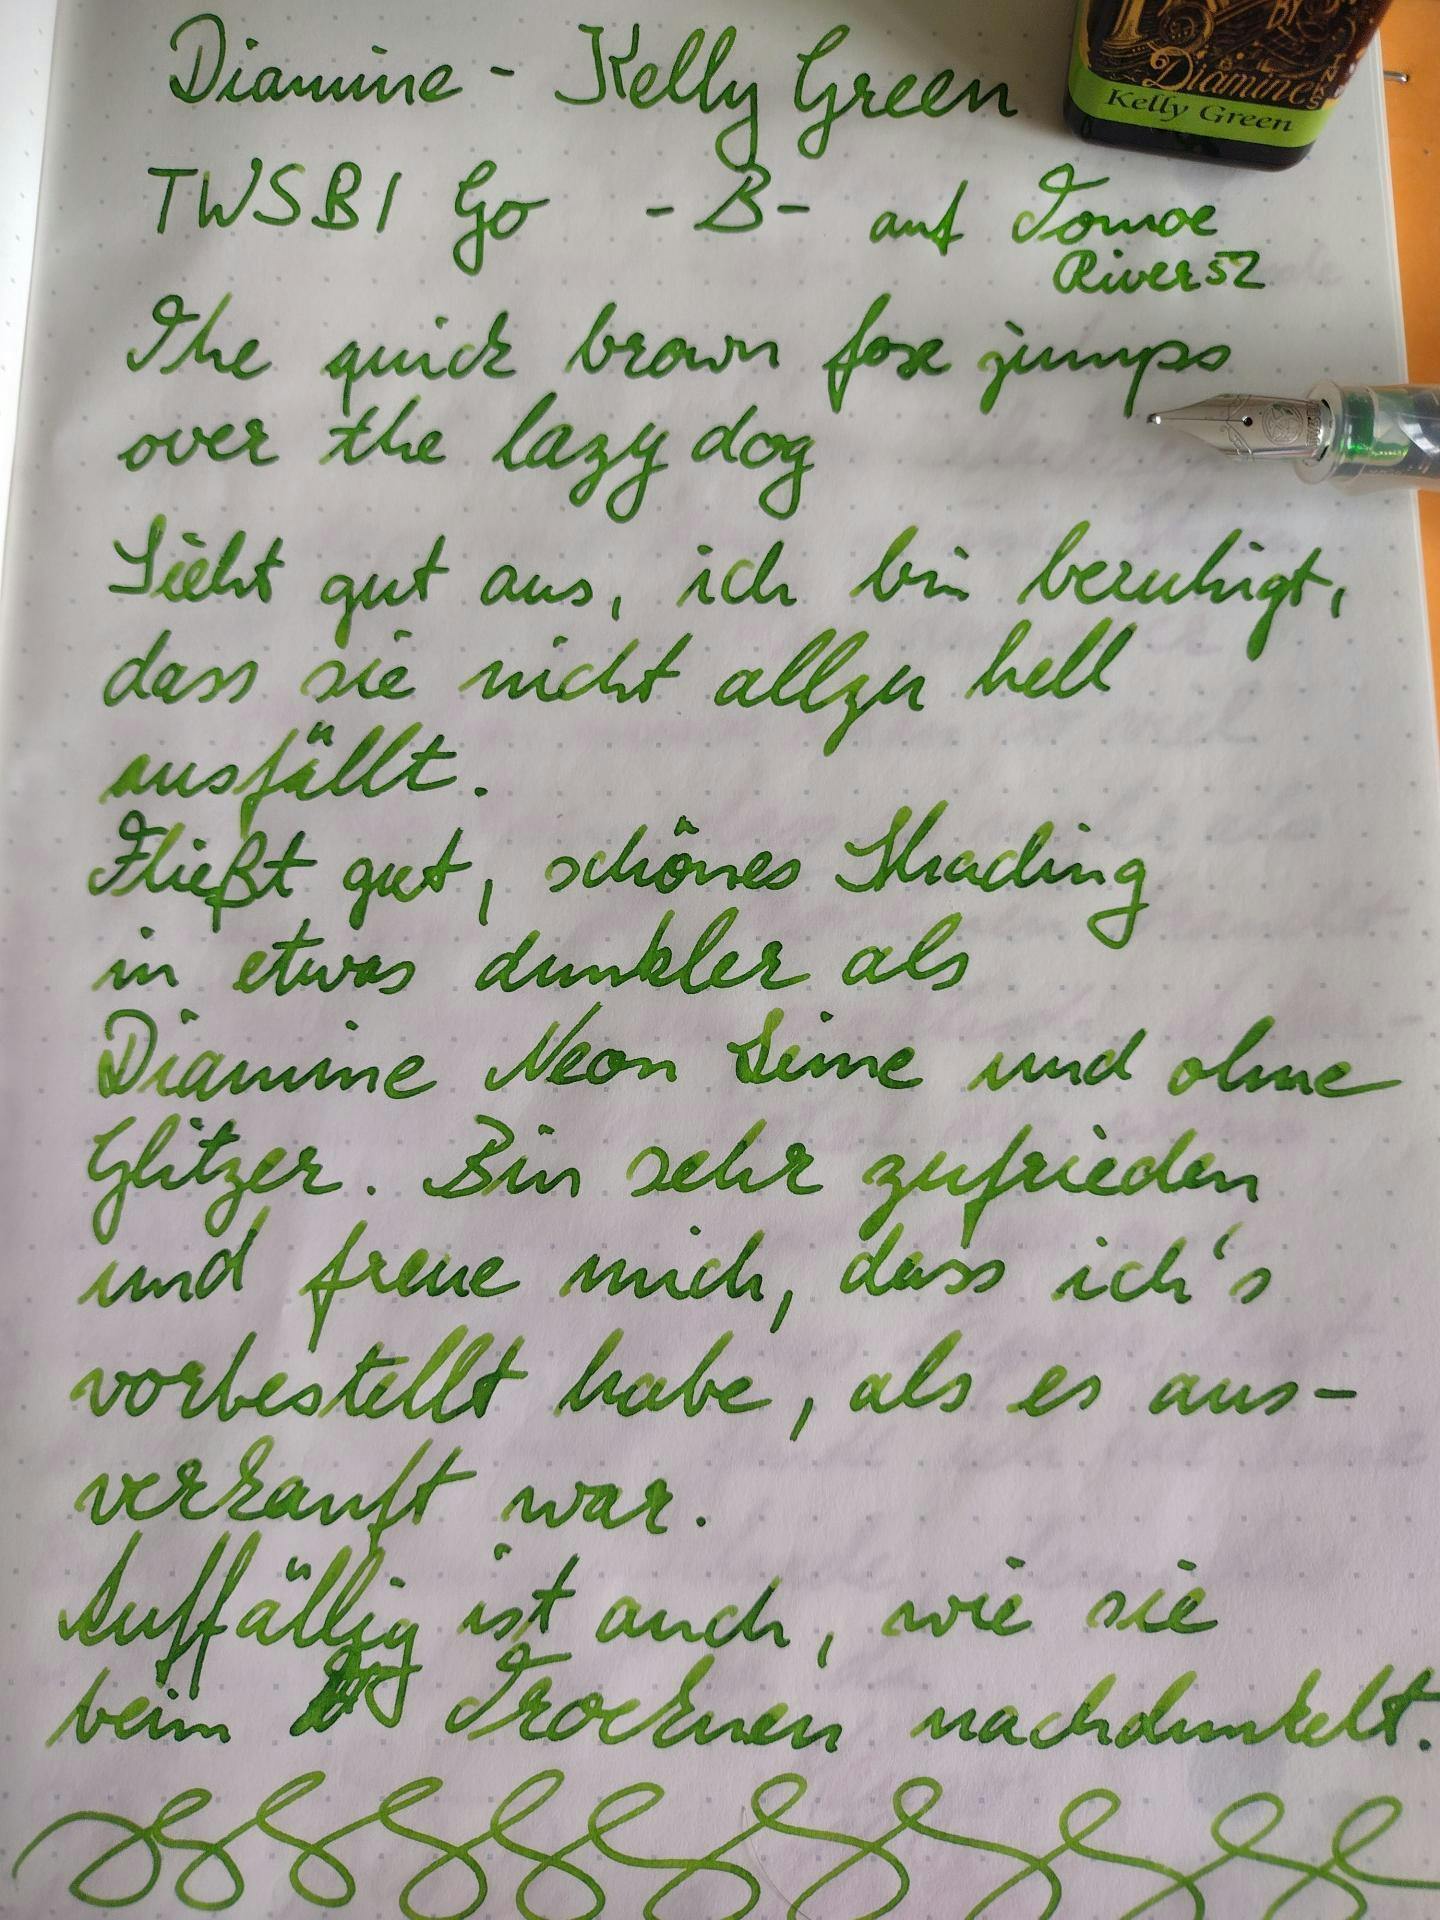 Diamine - Kelly Green
Diamine
INKS
Kelly Green
TWSBI Go -B- auf Tomoe
River 52
The quick brown fox jumps
over the lazy dog
Sieht gut aus, ich bin beruhigt,
dass sie nicht allzu hell
ausfällt.
Fließt gut, schönes Shading
in etwas dunkler als
Diamine Neon Lime und ohne
Glitzer. Bin sehr zufrieden
und freue mich, dass ich's
vorbestellt habe, als es aus-
verkauft war.
Auffällig ist auch, wie sie
beim Trocknen nachdunkelt.